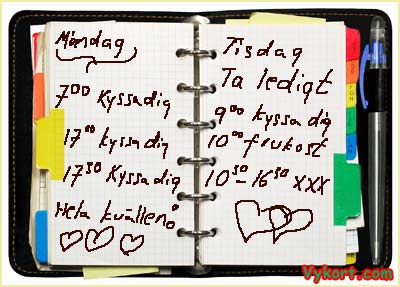 Måndag
7⁰⁰ Kyssadig
17⁰⁰ kyssadig
17³⁰ Kyssadig
Hela kvällen
Tisdag
Ta ledigt
9⁰⁰ kyssa dig
10⁰⁰ frukost
10³⁰-16³⁰ xxx
Vykort.com